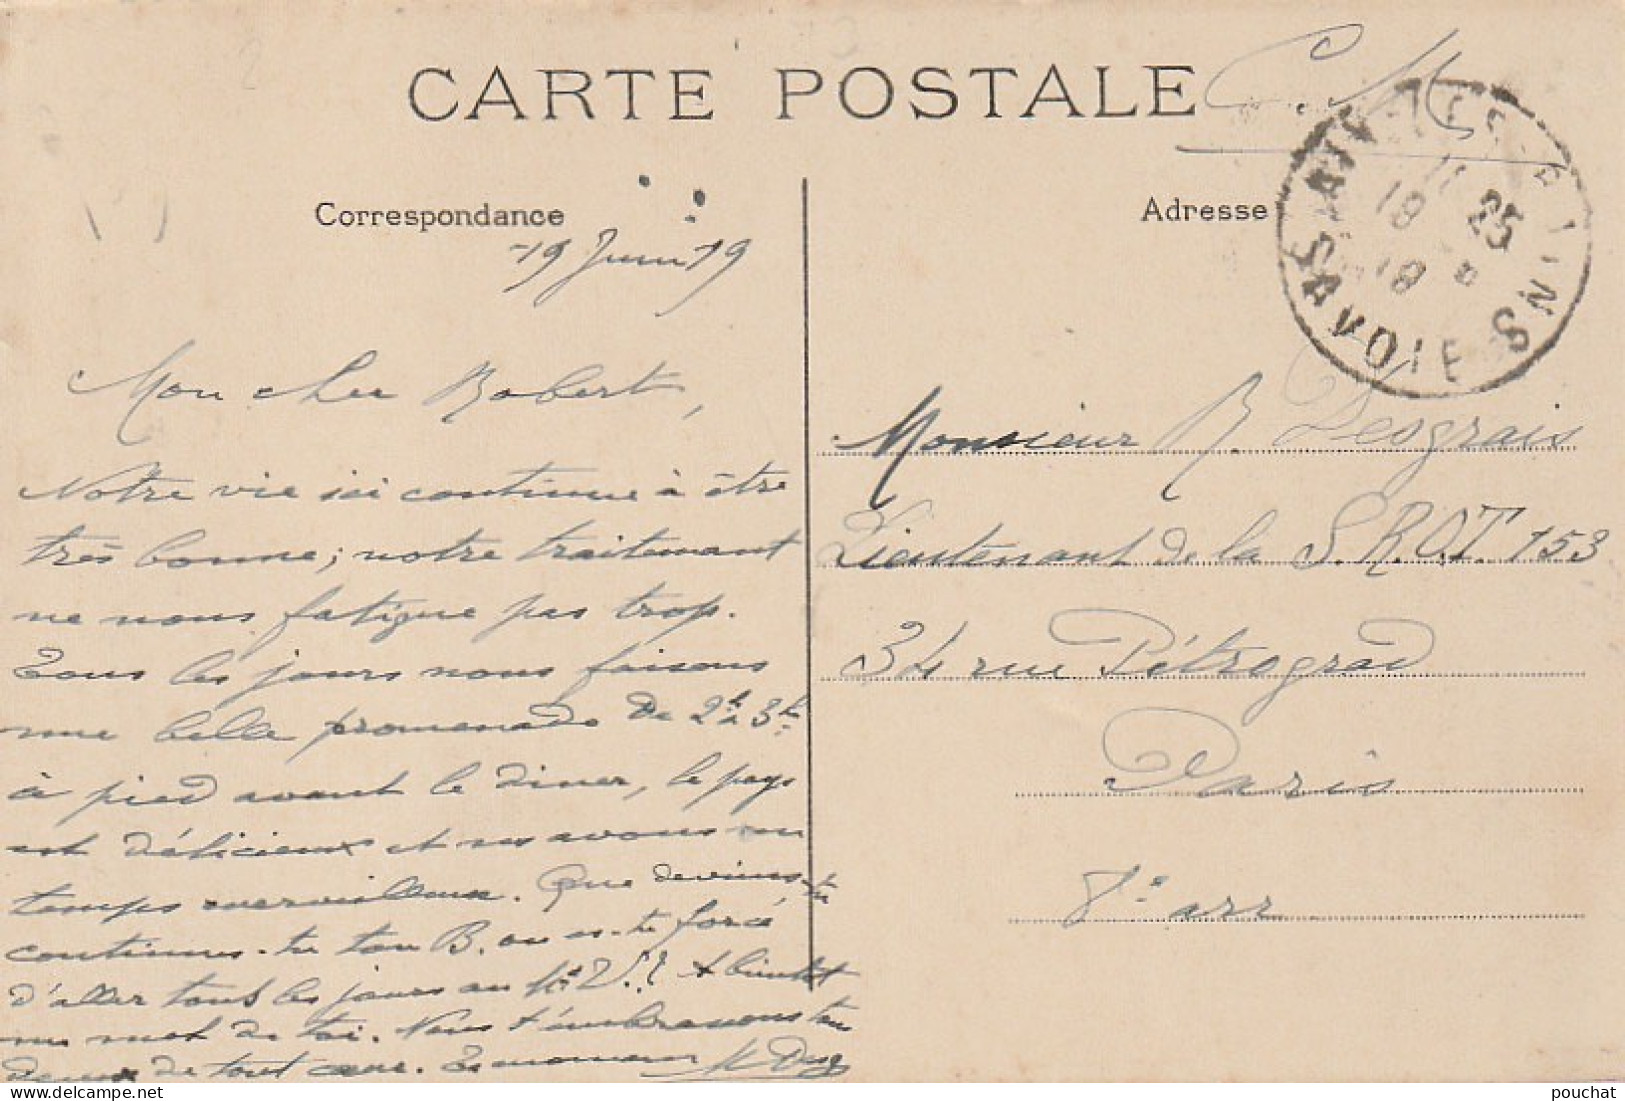 CARTE POSTALE
C. M.
Correspondance
Adresse
SAVOIE
11 25
19
19 Juin 19
Mon cher Robert,
Notre vie ici continue à être
très bonne; notre traitement
ne nous fatigue pas trop.
Tous les jours nous faisons
une belle promenade de 2h à 3h
à pied avant le diner, le pays
est délicieux et ns avons un
temps merveilleux. Que deviens-tu
continues-tu ton B. ou es-tu forcé
d'aller tous les jours au
A bientôt
un mot de toi. Nous t'embrassons tous
deux de tout cœur. Ta maman
Monsieur R. Desgrais
Lieutenant de la S.R.O.T 153
34 rue Pétrograd
Paris
8e arr
pouchat